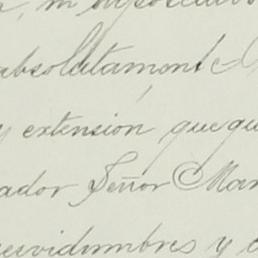 absolutamente
y extensión que qu
ador Señor Man
servidumbres y c